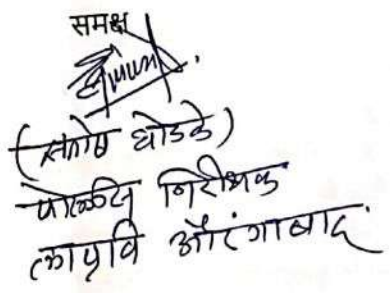 समक्ष
(संतोष घोडके)
पोलीस निरीक्षक
लाप्रवि औरंगाबाद.